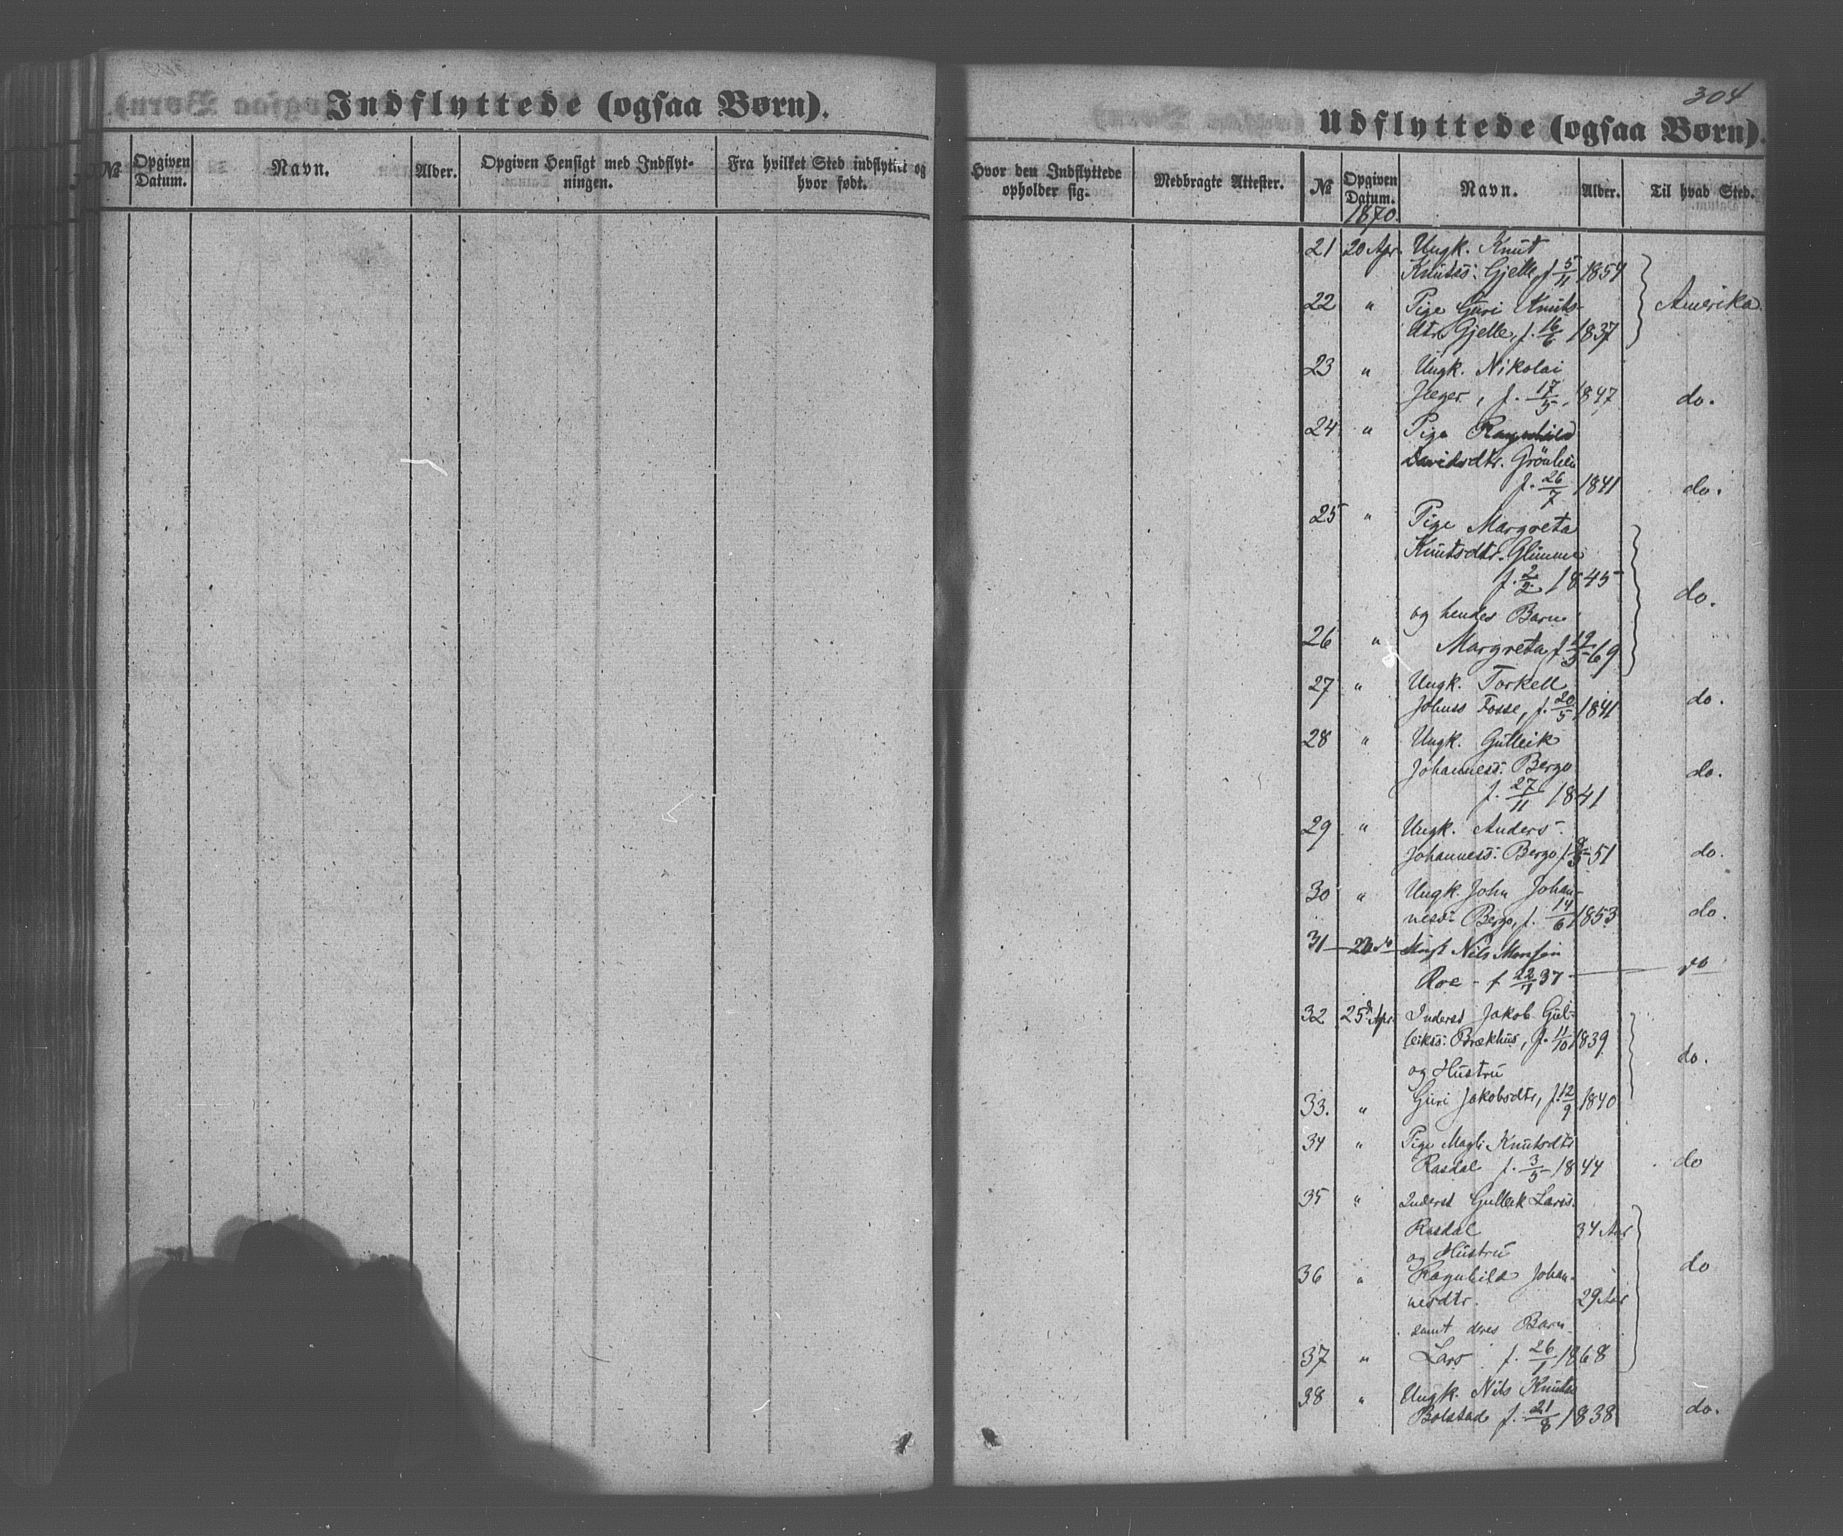 Indflyttede (ogsaa Børn).
№ Opgiven Datum. Navn. Alder. Opgiven Hensigt med Indflytningen. Fra hvilket Sted indflyttet og hvor født.
304
Udflyttede (ogsaa Børn).
Hvor den Indflyttede opholder sig. Medbragte Attester. № Opgiven Datum. Navn. Alder. Til hvad Sted.
1870.
21 20 Apr. Ungk. Knut
Knutss: Gjelle, f. 5/11 1854
22 " Pige Guri Knuts- Amerika
dtr. Gjelle, f. 16/6 1837
23 " Ungk. Nikolai
Jæger, f. 17/5 1847 do.
24 " Pige Ragnhild
Davidsdtr. Grönlien
f. 26/7 1841 do.
25 " Pige Margreta
Knutsdtr. Glimme
f. 2/2 1845 do.
og hendes Barn
26 " Margreta f. 19/5 69
27 " Ungk. Torkell
Johnss Fosse, f. 20/5 1841 do.
28 " Ungk. Gulleik
Johanness: Bergo do.
f. 27/11 1841
29 " Ungk. Anders
Johanness: Bergo f. 51 do.
30 " Ungk. John Johan-
ness: Bergo, f. 14/6 1853 do.
31 Nils Monsen
Roe - f 22/11 37 do
32 25 Apr. Inderst Jakob Gul-
leikss: Brækhus, f. 11/10 1839
og Hustru do.
33. " Guri Jakobsdtr, f. 12/9 1840
34 " Pige Magli Knutsdtr
Rasdal f. 3/5 1844 do
35 " Inderst Gulleik Larss.
Rasdal 34 Aar
og Hustru
36 " Ragnhild Johan- do
nesdtr. 29 Aar
samt deres Barn
37 " Lars f. 26/1 1868
38 " Ungk. Nils Knutss
Bolstad f. 21/8 1838 do.